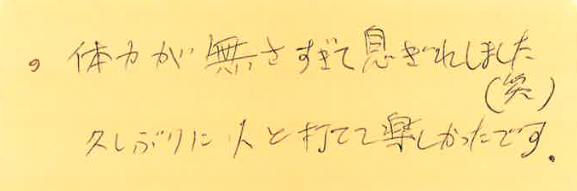 。体力が無さすぎて息ぎれしました
(笑)
久しぶりに人と打てて楽しかったです。